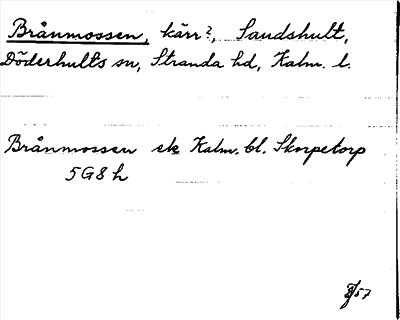 Brånmossen, kärr?, Sandshult,
Döderhults sn, Stranda hd, Kalm. l.
Brånmossen ek Kalm. bl. Skorpetorp
5G8h
/57